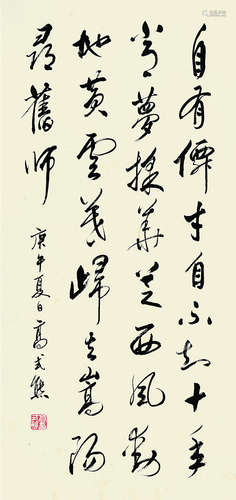 自有僊才自不知十年
常夢採華芝西風動
地黃雲暮歸去嵩陽
尋舊師
庚午夏日高式熊